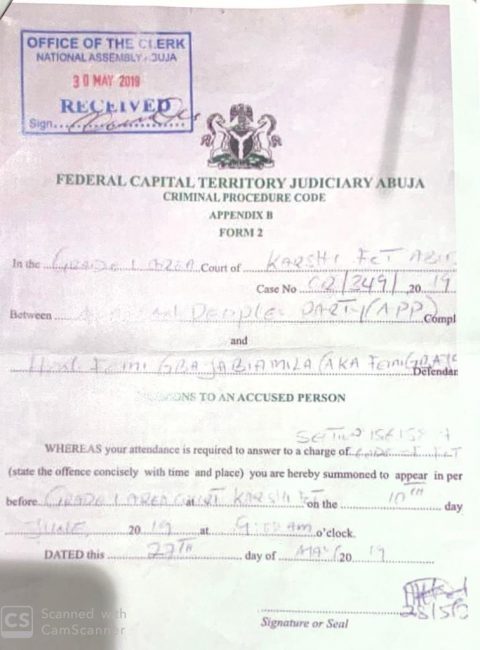 OFFICE OF THE CLERK
NATIONAL ASSEMBLY, ABUJA
30 MAY 2019
RECEIVED
Sign.
FEDERAL CAPITAL TERRITORY JUDICIARY ABUJA
CRIMINAL PROCEDURE CODE
APPENDIX B
FORM 2
In the GRADE 1 AREA Court of KARSHI FCT
Case No CR/349/ 20 19
Between PEOPLES PARTY (APP) Compl
and
Hon. Femi GBAJABIAMILA (AKA Femi
Defendan
TO AN ACCUSED PERSON
WHEREAS your attendance is required to answer to a charge of
(state the offence concisely with time and place) you are hereby summoned to appear in per
before GRADE 1 AREA COURT at KARSHI FCT on the 10th day
JUNE, 20 19 at 9:00am o'clock.
DATED this 27TH day of MAY 20 19
Signature or Seal
CS Scanned with
CamScanner